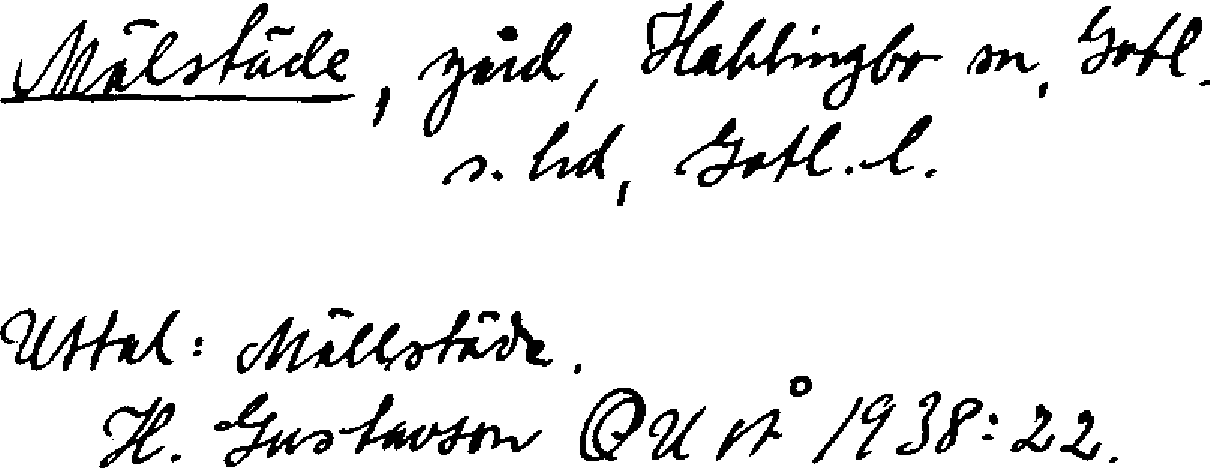 Mälstäde, gård, Hablingbo sn, Gotl.
s. hd, Gotl. l.
Uttal: Mällstäde.
H. Gustavson 1938:22.